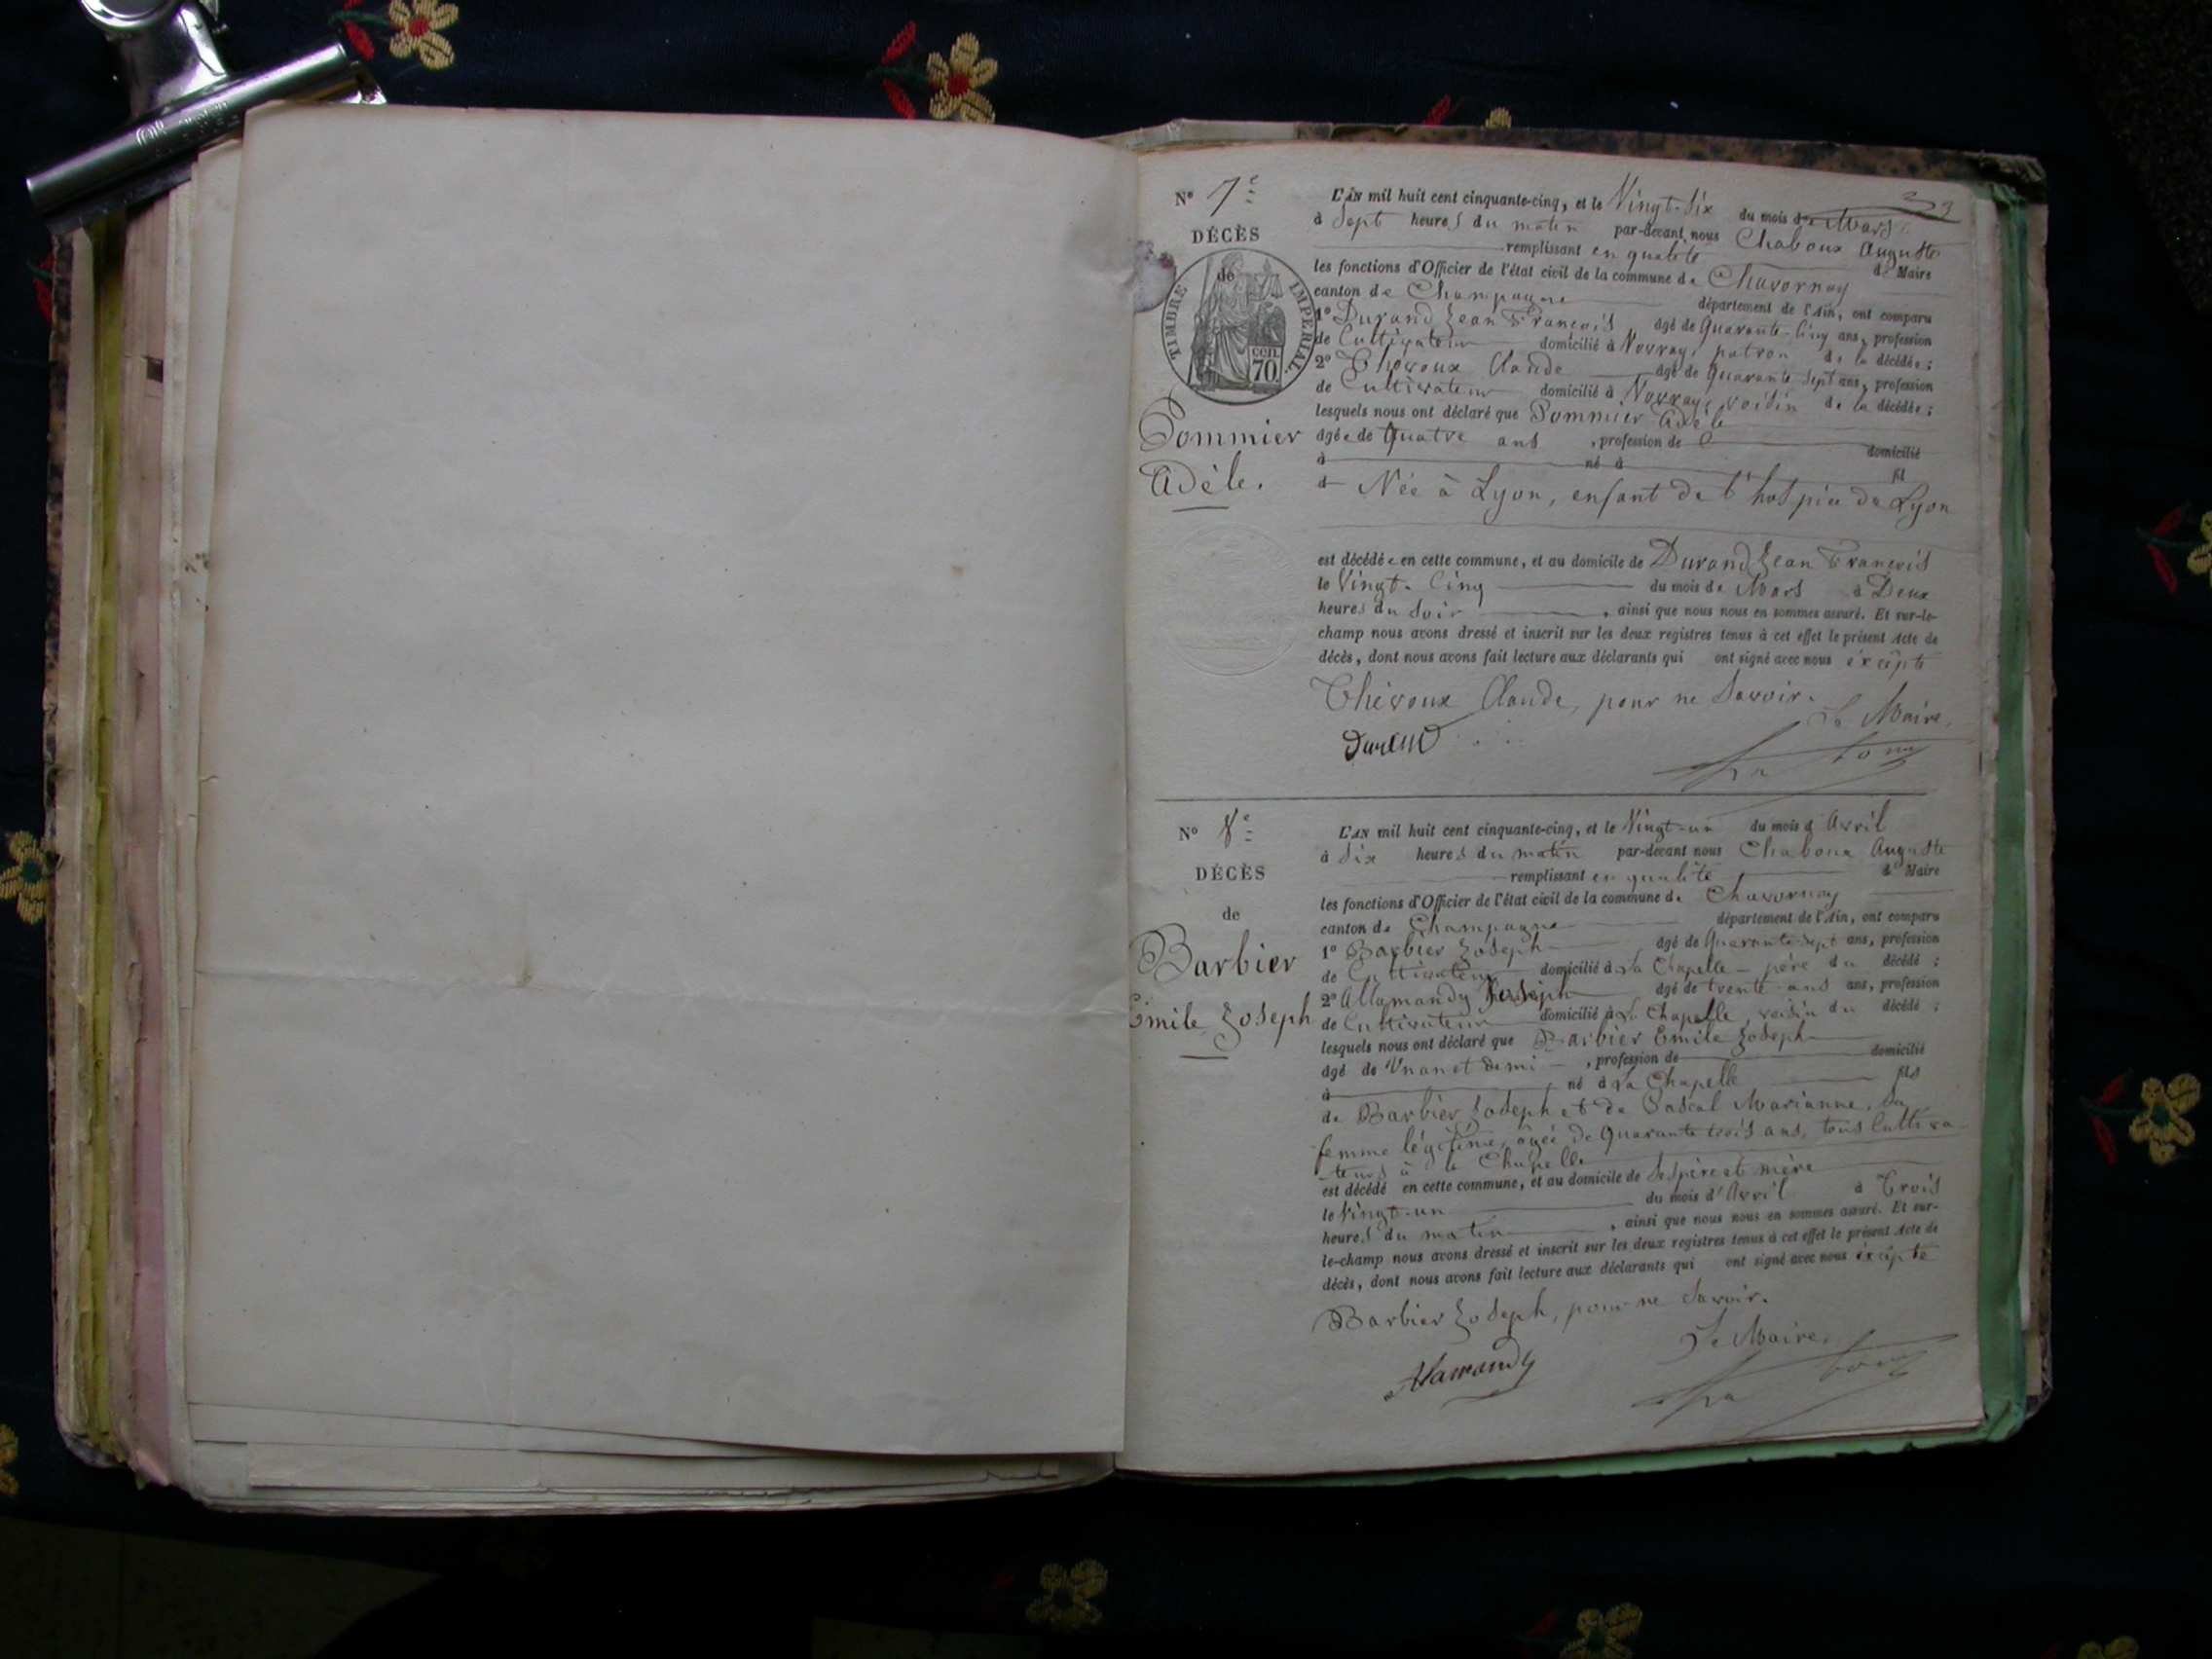 39
N° 7e
DÉCÈS
de
TIMBRE IMPERIAL
cen. 70
Pommier
Adèle.
L'AN mil huit cent cinquante-cinq, et le Vingt-Six du mois de Mars
à Sept heures du matin par-devant nous Chaboux Auguste
remplissant en qualité de Maire
les fonctions d'Officier de l'état civil de la commune de Chavornay
canton de Champagne département de l'Ain, ont comparu
1° Durand Jean François âgé de Quarante-Cinq ans, profession
de Cultivateur domicilié à Vovray, patron de la décédée ;
2° Chevoux Claude âgé de Quarante Sept ans, profession
de Cultivateur domicilié à Vovray, voisin de la décédée ;
lesquels nous ont déclaré que Pommier Adèle
âgée de Quatre ans , profession de domicilié
à né à fil
d Née à Lyon, enfant de l'hospice de Lyon
est décédée en cette commune, et au domicile de Durand Jean François
le Vingt-Cinq du mois de Mars à Deux
heures du Soir , ainsi que nous nous en sommes assuré. Et sur-le-
champ nous avons dressé et inscrit sur les deux registres tenus à cet effet le présent Acte de
décès, dont nous avons fait lecture aux déclarants qui ont signé avec nous éxcépté
Chevoux Claude, pour ne Savoir.
Le Maire,
Durand
N° 8e
DÉCÈS
de
Barbier
Emile Joseph
L'AN mil huit cent cinquante-cinq, et le Vingt-un du mois d'Avril
à Six heures du matin par-devant nous Chaboux Auguste
remplissant en qualité de Maire
les fonctions d'Officier de l'état civil de la commune de Chavornay
canton de Champagne département de l'Ain, ont comparu
1° Barbier Joseph âgé de Quarante Sept ans, profession
de Cultivateur domicilié à La Chapelle - père du décédé ;
2° Allamandy Joseph âgé de trente ans ans, profession
de Cultivateur domicilié à La Chapelle, voisin du décédé ;
lesquels nous ont déclaré que Barbier Emile Joseph
âgé de Un an et demi , profession de domicilié
à né à La Chapelle fils
de Barbier Joseph et de Pascal Marianne, Sa
femme légitime, âgée de Quarante trois ans, tous Cultiva-
-teurs à la Chapelle
est décédé en cette commune, et au domicile de Ses père et mère
le Vingt-un du mois d'Avril à Trois
heures du matin , ainsi que nous nous en sommes assuré. Et sur-
le-champ nous avons dressé et inscrit sur les deux registres tenus à cet effet le présent Acte de
décès, dont nous avons fait lecture aux déclarants qui ont signé avec nous éxcépté
Barbier Joseph, pour ne Savoir.
Le Maire,
Allamandy